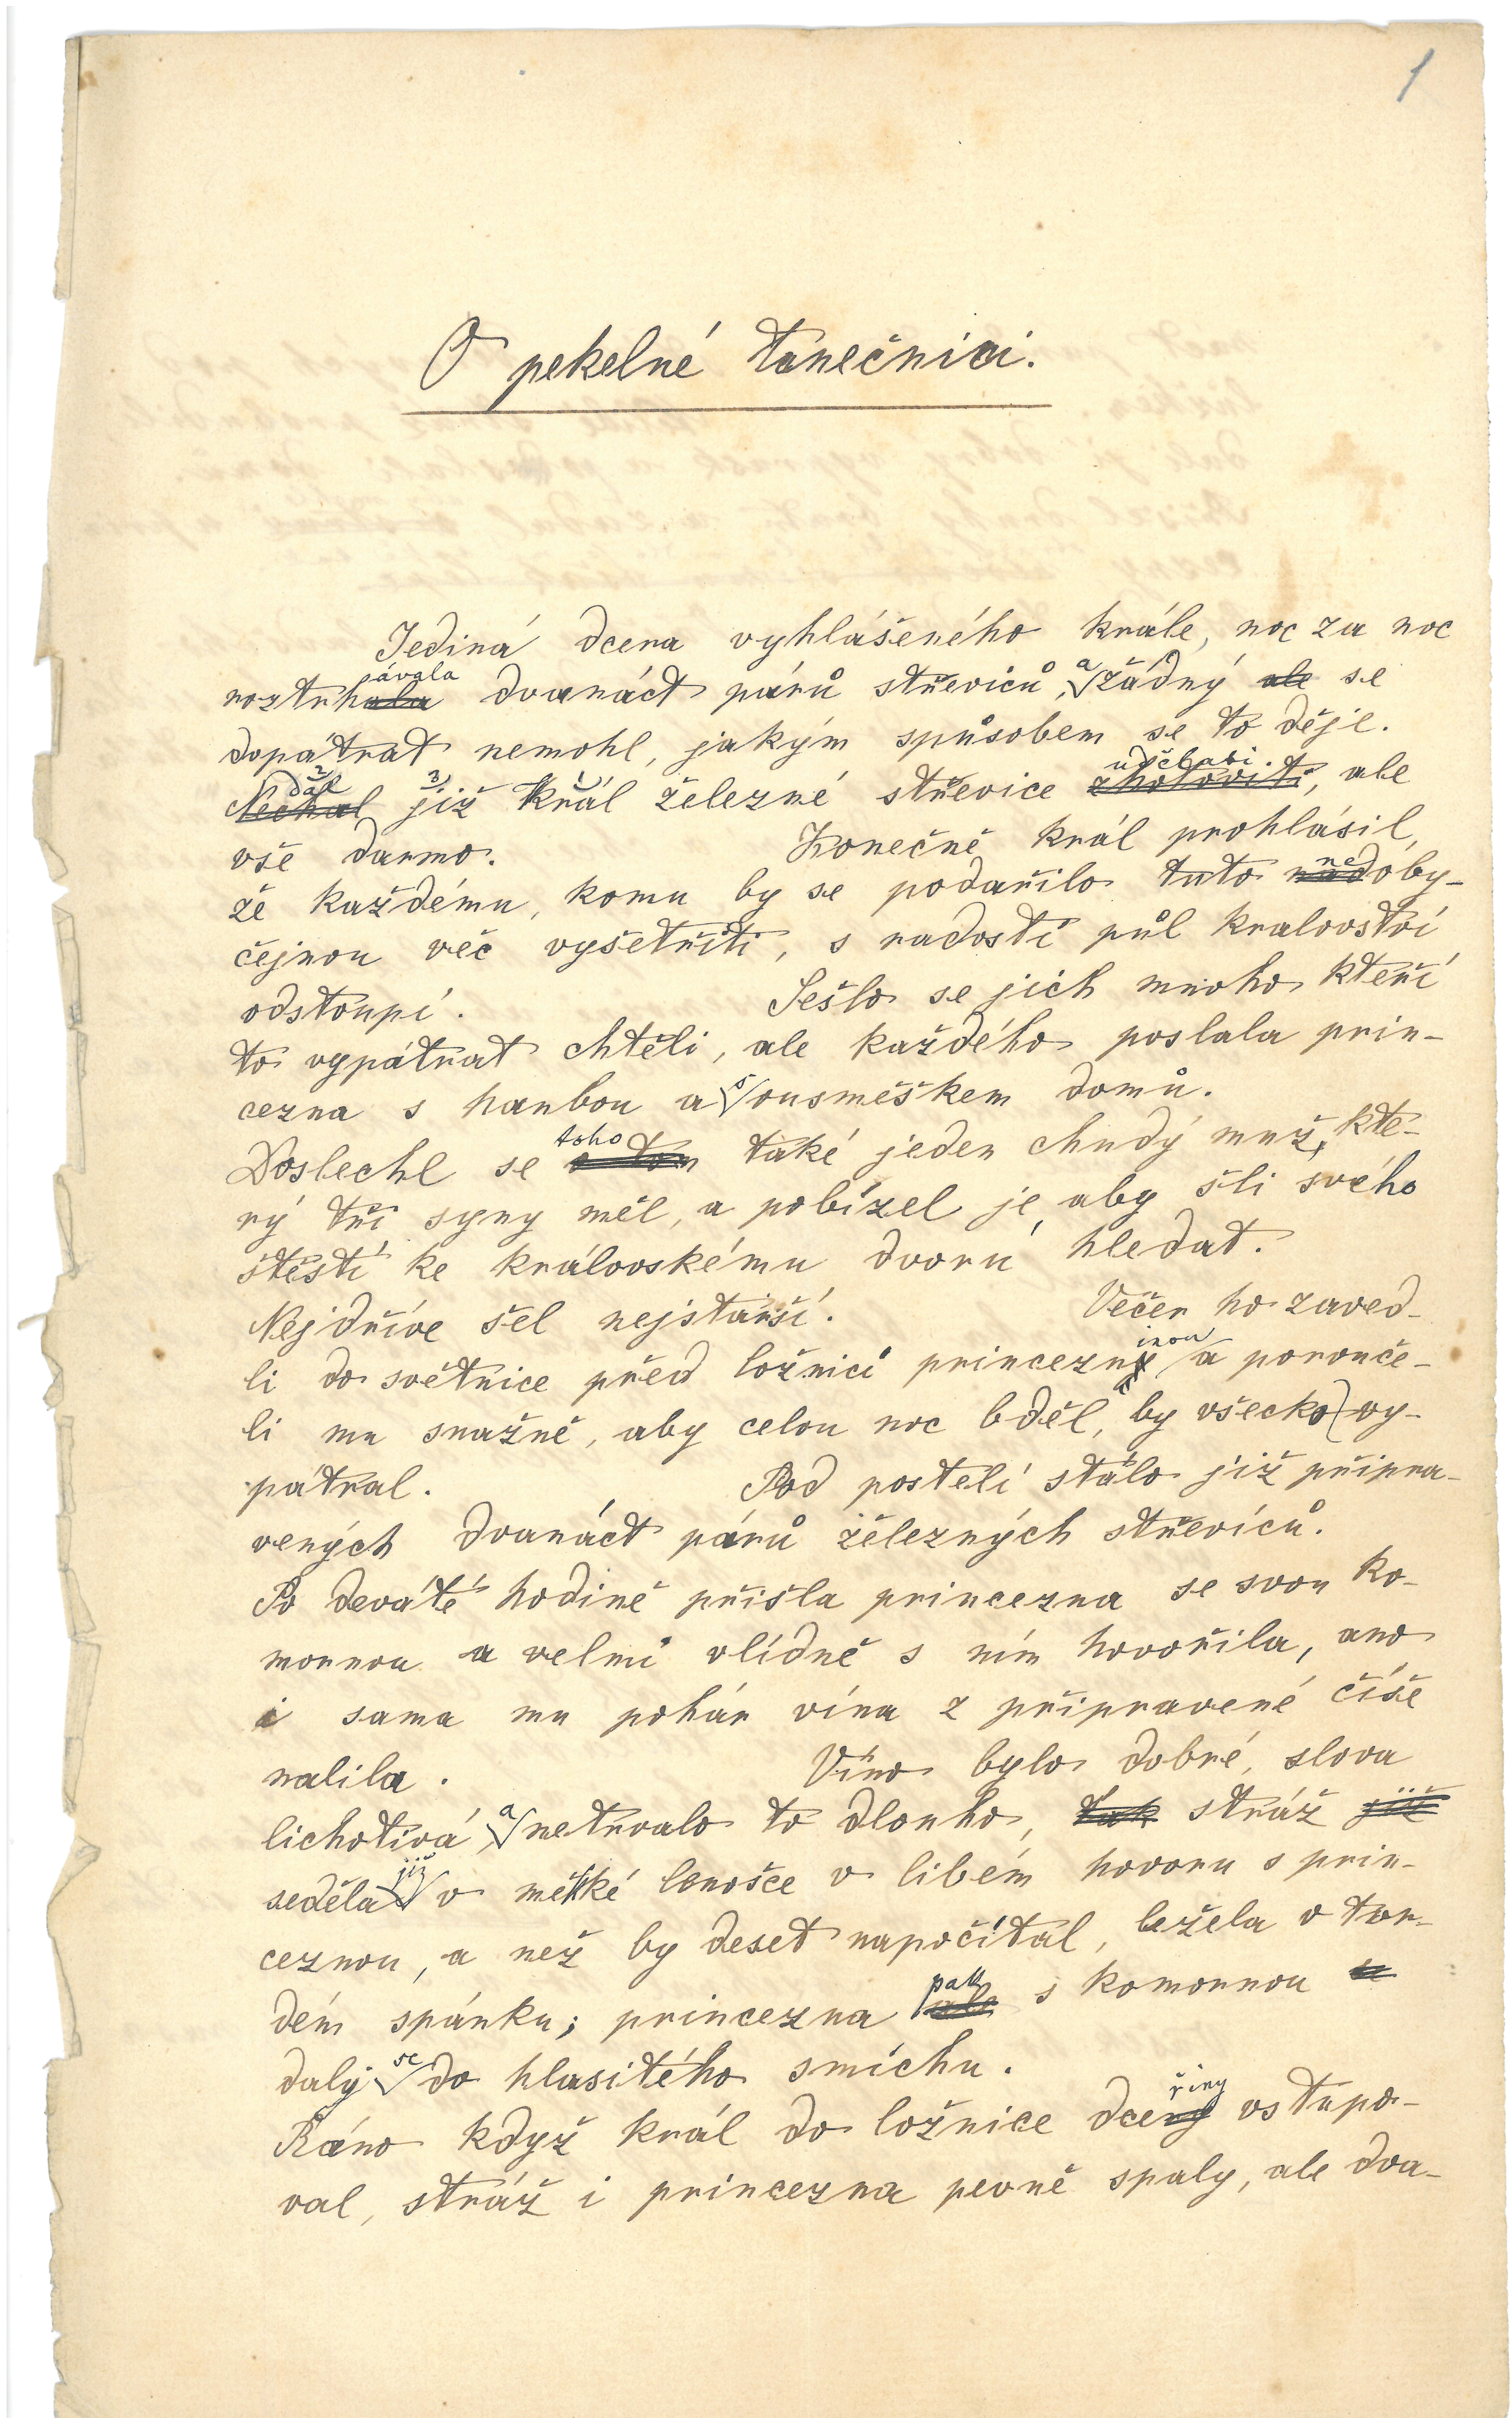 1
O pekelné tanečnici.
Jediná dcera vyhlášeného krále, noc za noc
roztrhávala dvanáct párů střevíců, a žádný ale se
dopátrat nemohl, jakým spůsobem se to děje.
Nechal dal již král železné střevíce zhotoviti udělati, ale
vše darmo. Konečně král prohlásil,
že každému, komu by se podařilo tuto neoby-
čejnou věc vyšetřiti, s radostí půl kralovství
odstoupí. Sešlo se jich mnoho kteří
to vypátrat chtěli, ale každého poslala prin-
cezna s hanbou a s ousměškem domů.
Doslechl se o tom toho také jeden chudý muž, kte-
rý tři syny měl, a pobízel je, aby šli svého
štěstí ke královskému dvoru hledat.
Nejdříve šel nejstarší. Večer ho zaved-
li do světnice před ložnicí princezninou a poruče-
li mu snažně, aby celou noc bděl, by všecko vy-
pátral. Pod postelí stálo již připra-
vených dvanáct párů železných střevíců.
Po deváté hodině přišla princezna se svou ko-
mornou a velmi vlídně s ním hovořila, ano
i sama mu pohár vína z připravené číše
nalila. Víno bylo dobré, slova
lichotivá a netrvalo to dlouho, tak stráž již
seděla již v měkké lenošce v libém hovoru s prin-
ceznou, a než by deset napočítal, ležela v tvr-
dém spánku; princezna ale pak s komornou se
daly se do hlasitého smíchu.
Ráno když král do ložnice dceřiny vstupo-
val, stráž i princezna pevně spaly, ale dva-